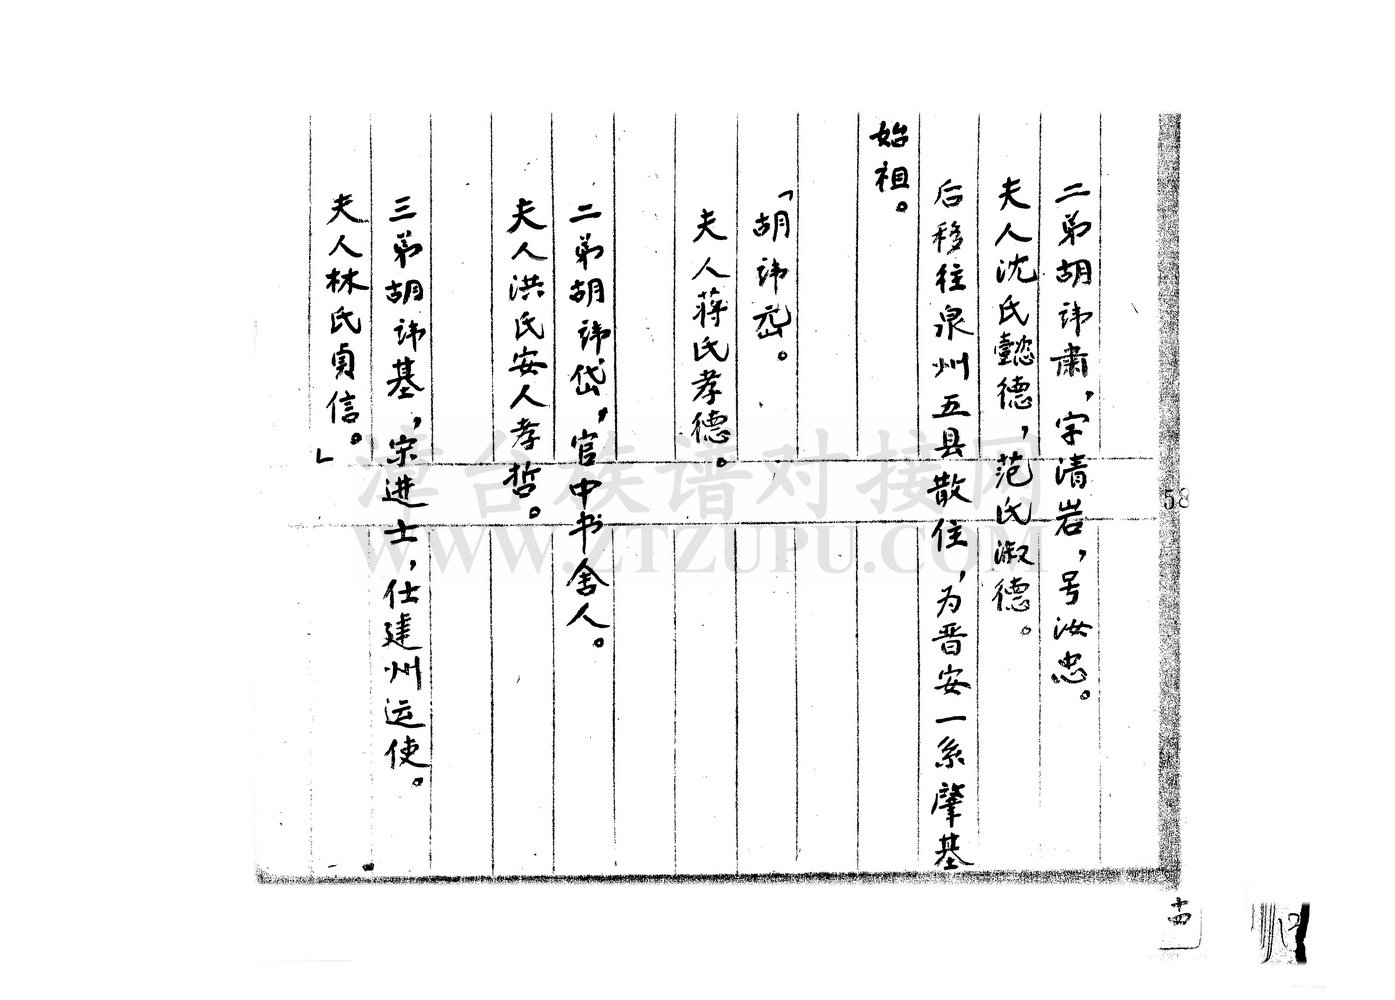 二弟胡讳肃，字清岩，号汝忠。
夫人沈氏懿德，范氏淑德。
后移往泉州五县散住，为晋安一系肇基
始祖。
「胡讳㟁。
夫人蒋氏孝德。
二弟胡讳岱，官中书舍人。
夫人洪氏安人孝哲。
三弟胡讳基，宋进士，仕建州运使。
夫人林氏贞信。」
58
十四
漳台族谱对接网
WWW.ZTZUPU.COM